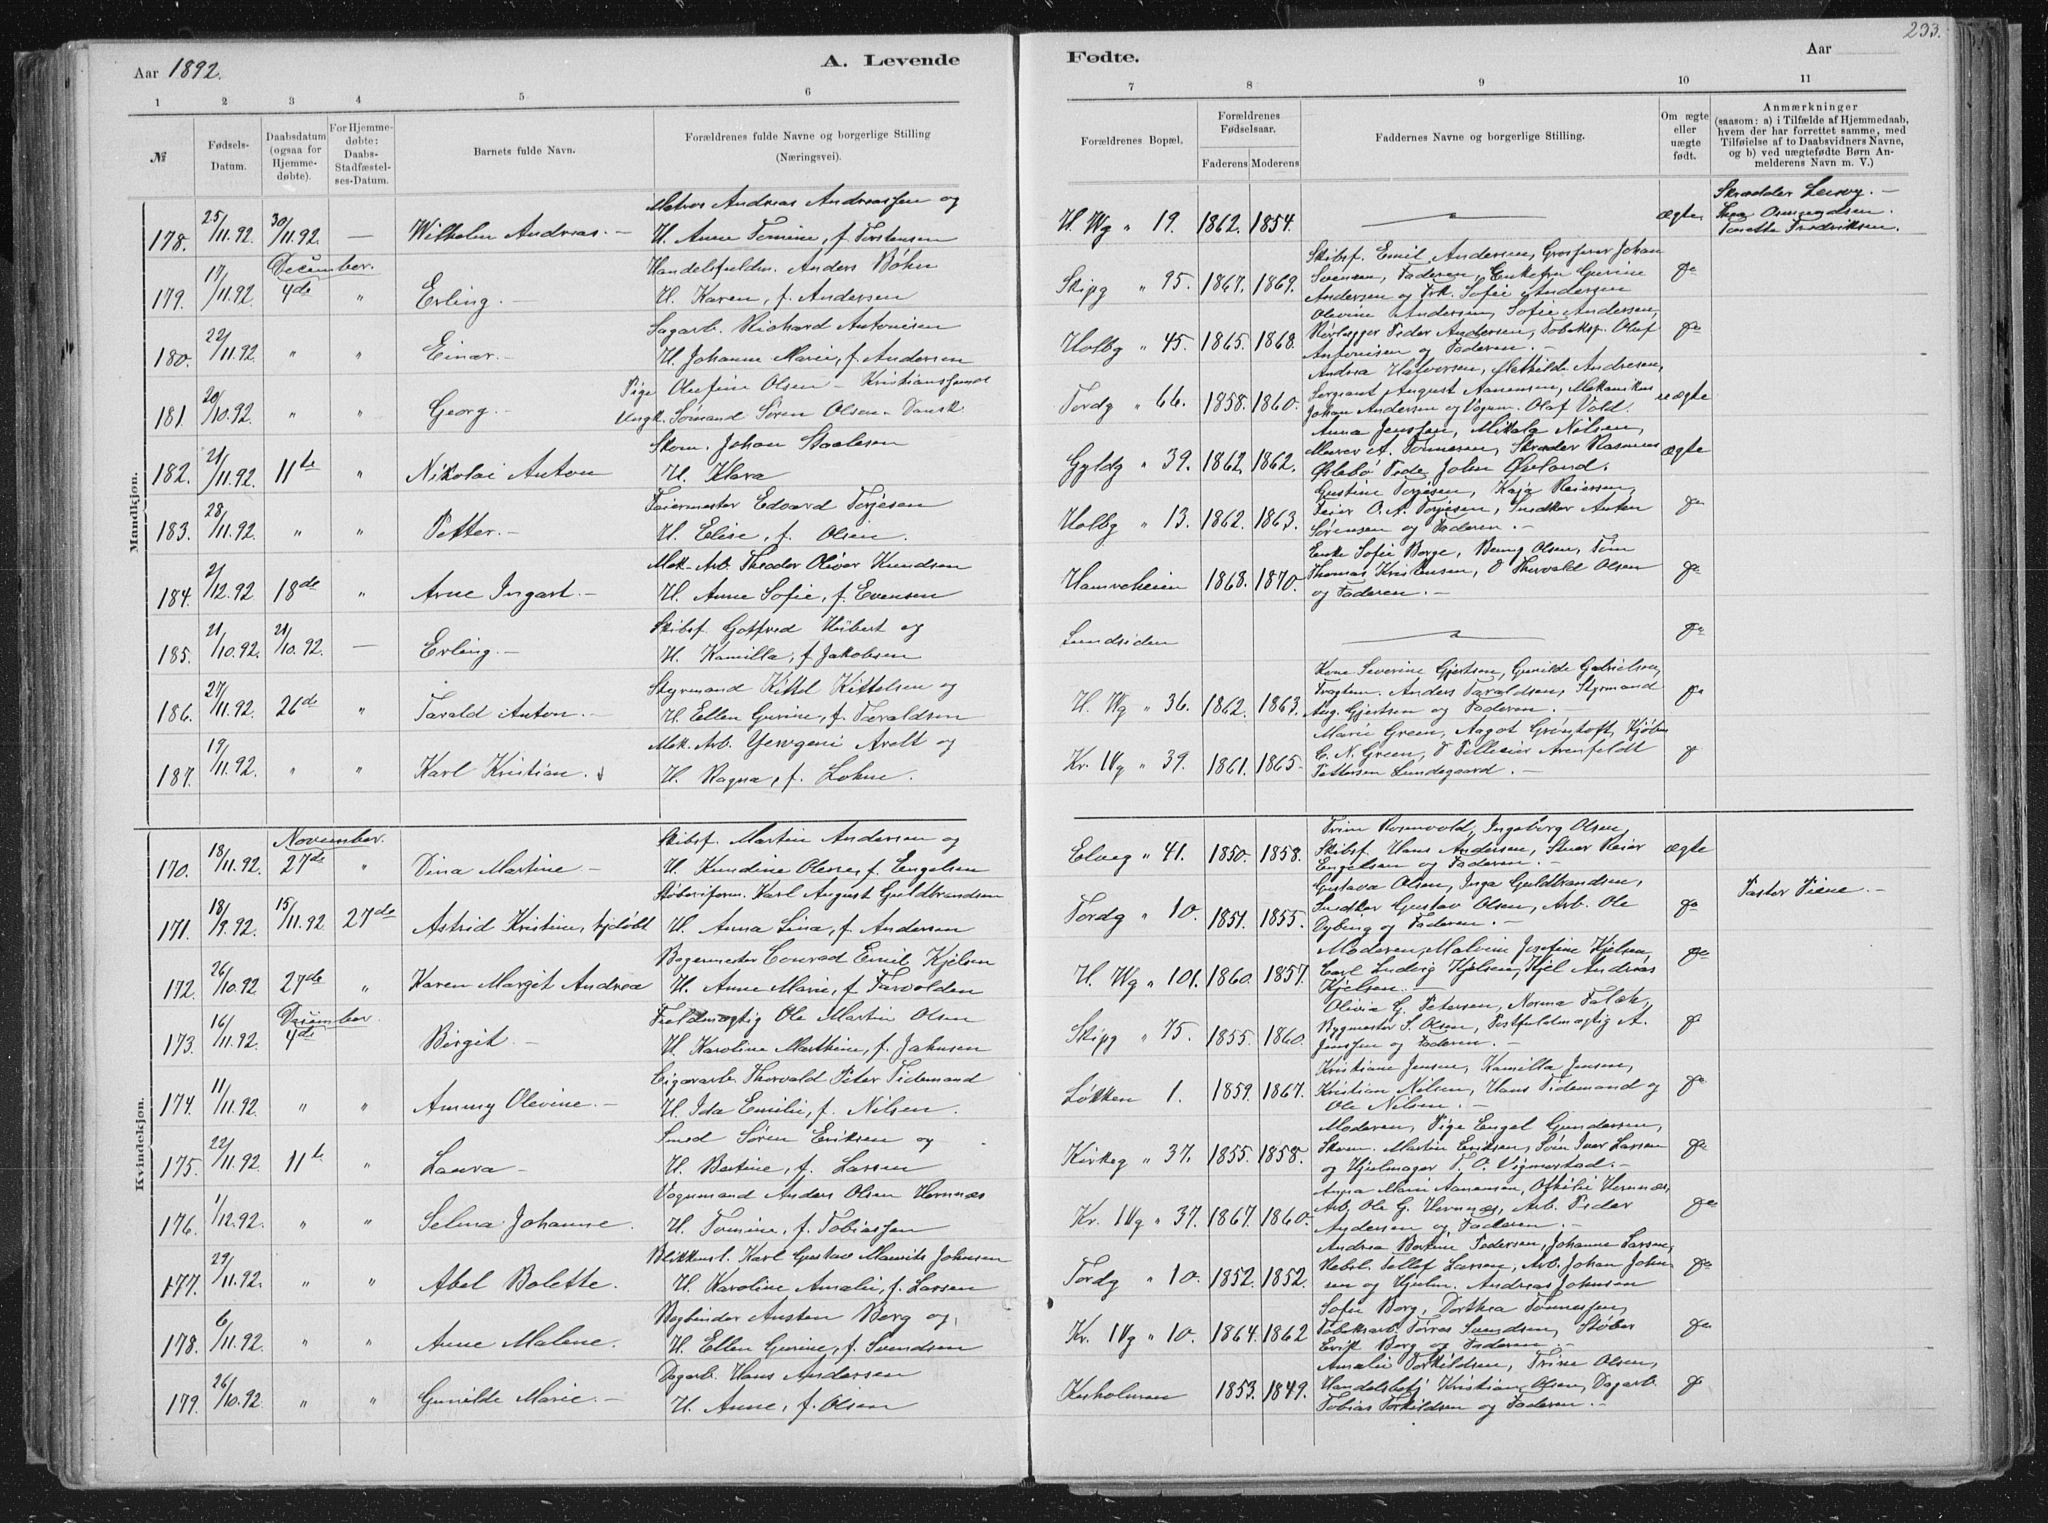 233.
Aar 1892. A. Levende Fødte. Aar
1 2 3 4 5 6 7 8 9 10 11
№ Fødsels-Datum. Daabsdatum (ogsaa for Hjemmedøbte). For Hjemmedøbte: Daabs-Stadfæstelses-Datum. Barnets fulde Navn. Forældrenes fulde Navne og borgerlige Stilling (Næringsvei). Forældrenes Bopæl. Forældrenes Fødselsaar. Faderens Moderens Faddernes Navne og borgerlige Stilling. Om ægte eller uægte født. Anmærkninger (saasom: a) i Tilfælde af Hjemmedaab, hvem der har forrettet samme, med Tilføielse af to Daabsvidners Navne, og b) ved uægtefødte Børn Anmelderens Navn m. V.)
Mandkjøn.
Matros Andreas Andreassen og
178. 25/11.92. 30/11.92. — Wilhelm Andreas. — H. Anne Tomine, f. Torstensen H. Wg " 19. 1862. 1854. — ægte Skrædder — Osmundsen. Fredriksen.
December.
Handelsfuldm. Anders Bøhn
179. 17/11.92 4de " Erling. — H. Karen, f. Andersen Skipg " 95. 1867. 1869. Skibsf. Emil Andersen, Grosserer Johan
Svensen, Faderen, Enkefru Gurine
Andersen og Frk. Sofie Andersen do
Sagarb. Richard Antonisen
180. 22/11.92 " " Einar. — H. Johanne Marie, f. Andersen Holbg " 45. 1865. 1868. Olevine Andersen, Sofie Andersen,
Peder Andersen, Olaf
Antonisen og Faderen. — do
Pige Olufine Olsen — Kristianssand
181. 20/10.92 " " Georg. — Ungk. Sømand Søren Olsen — Dansk Tordg " 66. 1858. 1860. Andrea Halvorsen, Mathilde Andresen,
Sergeant August Aanensen, Mekanikus
Johan Andersen og Olaf Vold. uægte
Skom. Johan Staalesen
182. 21/11.92 11te " Nikolai Anton H. Klara Gyldg " 39. 1862. 1862. Anna Jenssen, Mikala Nilsen,
Murer A. Tønnesen, Skræder Rasmus
Øslebø John Øvland. ægte
Feiermester Edvard Torjesen
183. 28/11.92 " " Petter. — H. Elise, f. Olsen. Holbg " 13. 1862. 1863. Gustine Torjesen, Kaja Reiersen,
Feier O. A. Torjesen, Snedker Anton
Sørensen og Faderen. — do
Mek. Arb. Theodor Oliver Knudsen
184. 2/12.92 18de " Arne Ingart. — H. Anne Sofie, f. Evensen Hamreheien 1868. 1870. Enke Sofie Borge, Olsen, Tøm
Thomas Kristensen, Thorvald Olsen
og Faderen. — do
Skibsf. Gotfred Hübert og
185. 21/10.92. 21/10.92. — Erling. — H. Kamilla, f. Jakobsen Lundsiden — do
Styrmand Kittel Kittelsen og
186. 27/11.92. 26de " Tarald Anton. — H. Ellen Gurine, f. Taraldsen H. Wg " 36. 1862. 1863. Kone Severine Gjertsen, Gunilde Gabrielsen,
Anders Taraldsen, Styrmand
Aug. Gjertsen og Faderen. do
Mek. Arb. Yewgeni Arelt og
187. 19/11.92 " " Karl Kristian. H. Ragna, f. Lohne. Kr. IVg " 39. 1861. 1865. Marie Green, Aagot Grøntoft,
C. N. Green, Arenfeldt
Pettersen Lundegaard. — do
Kvindekjøn.
November.
Skibsf. Martin Andersen og
170. 18/11.92 27de " Dina Martine — H. Kundine Olesse, f. Engelsen Elveg " 41. 1850. 1858. Trine Rosenvold, Ingeborg Olsen,
Skibsf. Hans Andersen, Reier
Engelsen og Faderen. — ægte
Støberiform. Karl August Guldbrandsen
171. 18/9.92 15/11.92 27de Astrid Kristine, hjdøbt H. Anna Lina, f. Andersen Tordg " 10. 1851. 1855. Gustava Olsen, Inga Guldbrandsen,
Snedker Gustav Olsen, Arb. Ole
Oybing og Faderen. — do Pastor Piene. —
Bagermester Conrad Emil Kjelsen
172. 26/10.92 27de " Karen Margit Andrea H. Anne Marie, f. Farvolden H. Wg " 101. 1860. 1857. Moderen, Malvine Josefine Kjelsen,
Carl Ludvig Kjelsen, Kjel Andreas
Kjelsen. — do
December.
Fuldmægtig Ole Martin Olsen
173. 16/11.92 4de Birgit. — H. Karoline Marthine, f. Jahnsen Skipg " 75. 1855. 1860. Olivia G. Petersen, Norma Falck,
Bygmester S. Olsen, Postfuldmægtig A.
Jenssen og Faderen. — do
Cigararb. Thorvald Peter Tidemand
174. 11/11.92 " " Ammy Olevine. — H. Ida Emilie, f. Nilsen. Løkken 1. 1859. 1867. Kristiane Jensen, Kamilla Jensen,
Kristian Nilsen, Hans Tidemand og
Ole Nilsen. — do
Smed Søren Eriksen og
175. 22/11.92 11te " Laura — H. Bertine, f. Larsen Kirkeg " 37. 1855. 1858. Moderen, Pige Engel Gundersen,
Skom. Martin Eriksen, Iver Larsen
og Hjulmager T. O. Vigmostad. — do
Vognmand Anders Olsen Hernnæs
176. 1/12.92. " " Selma Johanne. H. Tomine, f. Tobiassen Kr. IVg " 37. 1867. 1860. Anna Marie Aanensen, Othilie Hernnæs,
Arb. Ole G. Hernnæs, Arb. Peder
Andersen og Faderen. — do
Blikkensl. Karl Gustav Mauritz Johnsen
177. 29/11.92 " " Abel Bolette. H. Karoline Amalie, f. Larsen Tordg " 10. 1852. 1852. Andrea Bertine Pedersen, Johanne Larsen,
Tellef Larsen, Arb. Johan John-
sen og Andreas Johnsen do
Bogbinder Austen Borg og
178. 6/11.92 " " Anne Malene. H. Ellen Gurine, f. Svendsen Kr. IVg " 10. 1864. 1862 Sofie Borg, Dorthea Tønnessen,
Tobaksarb. Torvas Svendsen, Støber
Erik Borg og Faderen — do
Dagarb. Hans Andersen
179. 26/10.92 " " Gunilde Marie. — H. Anne, f. Olsen Kuholmen 1853. 1849. Amalie Torkildsen, Trine Olsen,
Handelsbetj Kristian Olsen, Dagarb.
Tobias Torkildsen og Faderen. — do